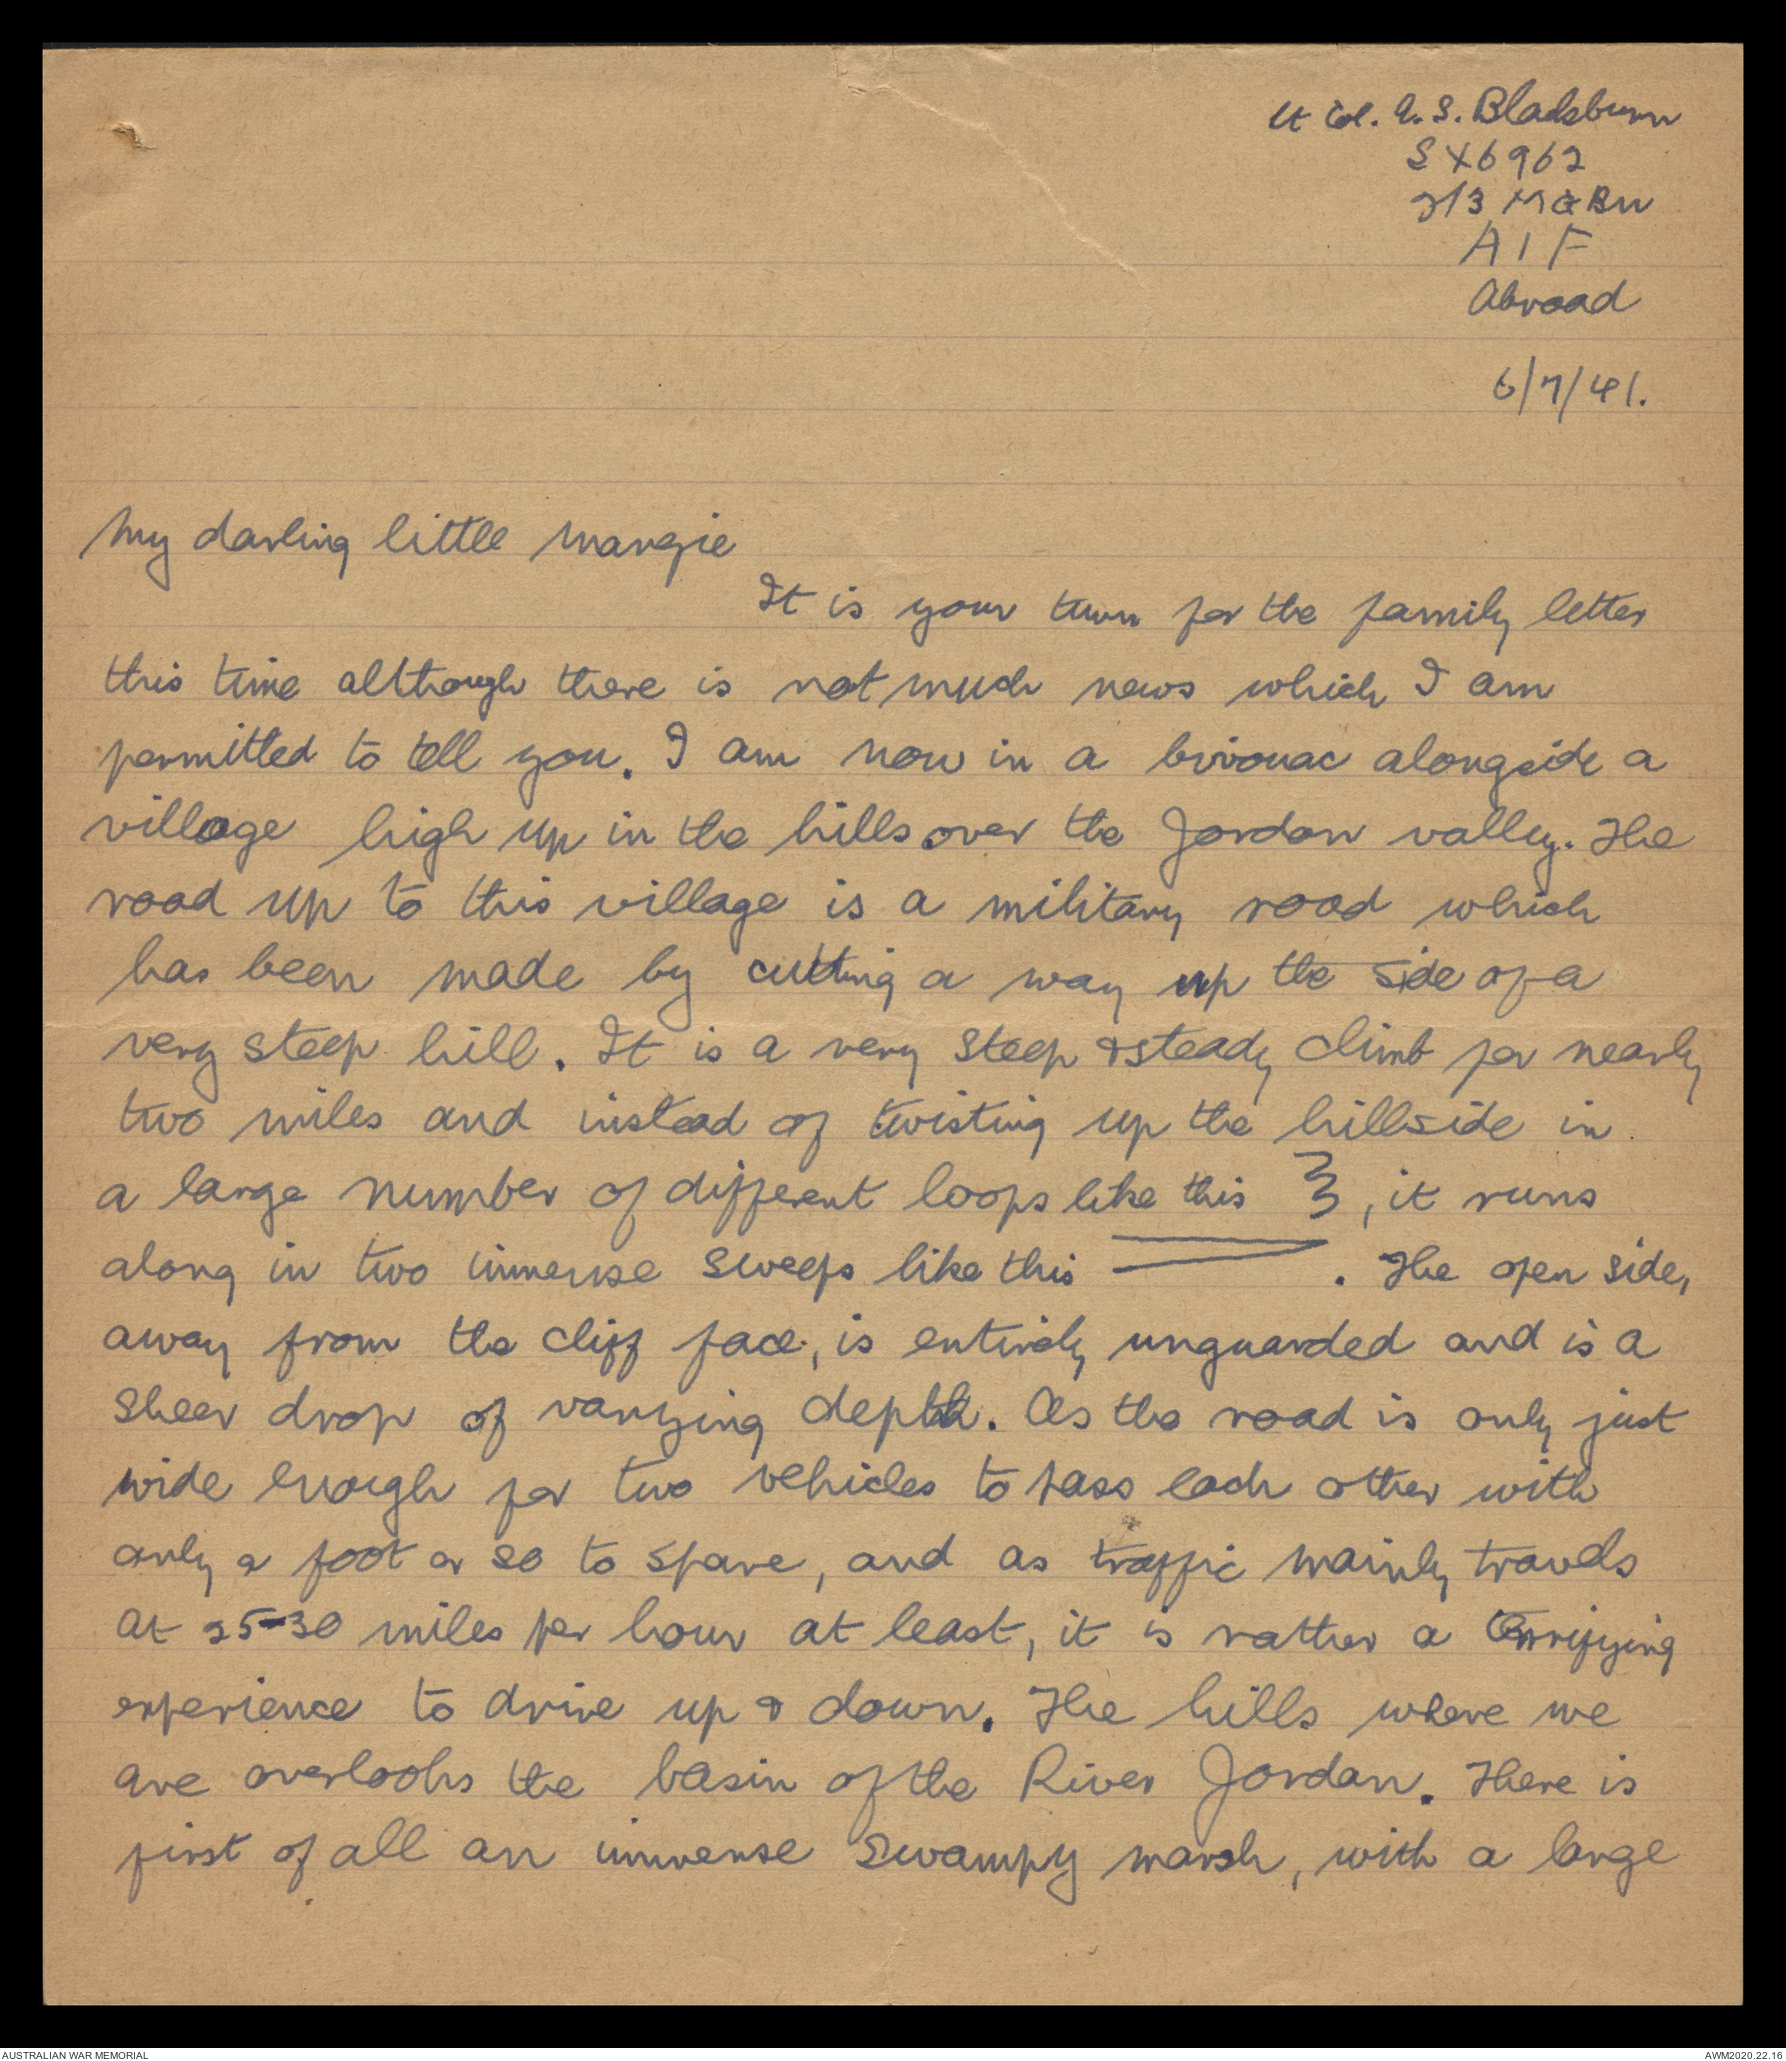 Lt Col. A. S. Blackburn
SX6962
2/3 M G Bn
A I F
Abroad
6/7/41.
My darling little Margie
It is your turn for the family letter
this time although there is not much news which I am
permitted to tell you. I am now in a bivouac alongside a
village high up in the hills over the Jordan valley. The
road up to this village is a military road which
has been made by cutting a way up the side of a
very steep hill. It is a very steep & steady climb for nearly
two miles and instead of twisting up the hillside in
a large number of different loops like this , it runs
along in two immense sweeps like this . The open side,
away from the cliff face, is entirely unguarded and is a
sheer drop of varying depth. As the road is only just
wide enough for two vehicles to pass each other with
only a foot or so to spare, and as traffic mainly travels
at 25-30 miles per hour at least, it is rather a terrifying
experience to drive up & down. The hills where we
are overlooks the basin of the River Jordan. There is
first of all an immense swampy marsh, with a large
AUSTRALIAN WAR MEMORIAL
AWM2020.22.16